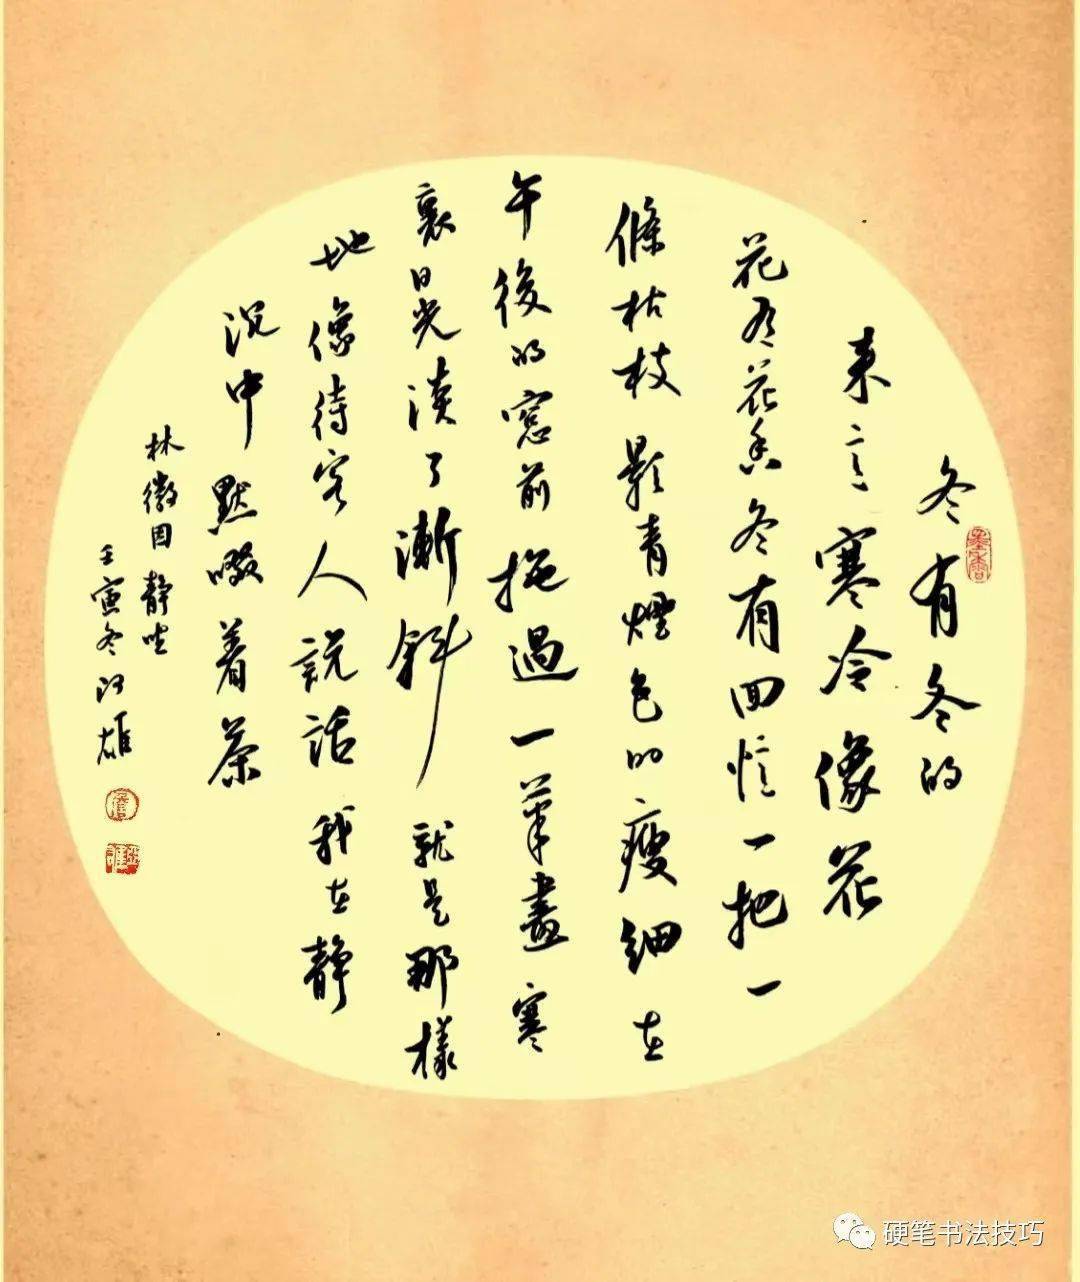 冬有冬的
来意寒冷像花
花有花香冬有回忆一把一
條枯枝影青煙色的瘦细在
午後的窓前拖過一筆畫寒
裏日光淡了漸斜就是那樣
地像待客人説話我在静
沉中黙啜着茶
林徽因静坐
壬寅冬雄
墨香
硬笔书法技巧